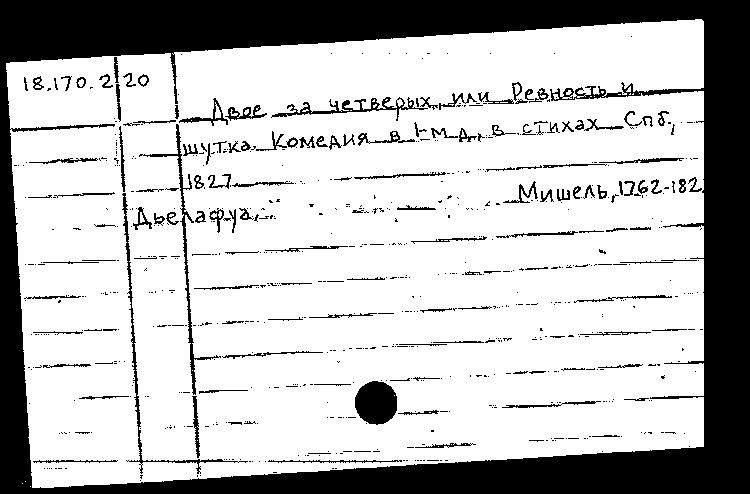 18.170.2.20
Двое за четверых, или Ревность и
шутка. Комедия в 1-м д., в стихах Спб,
1827
Дьелафуа, Мишель, 1762-182